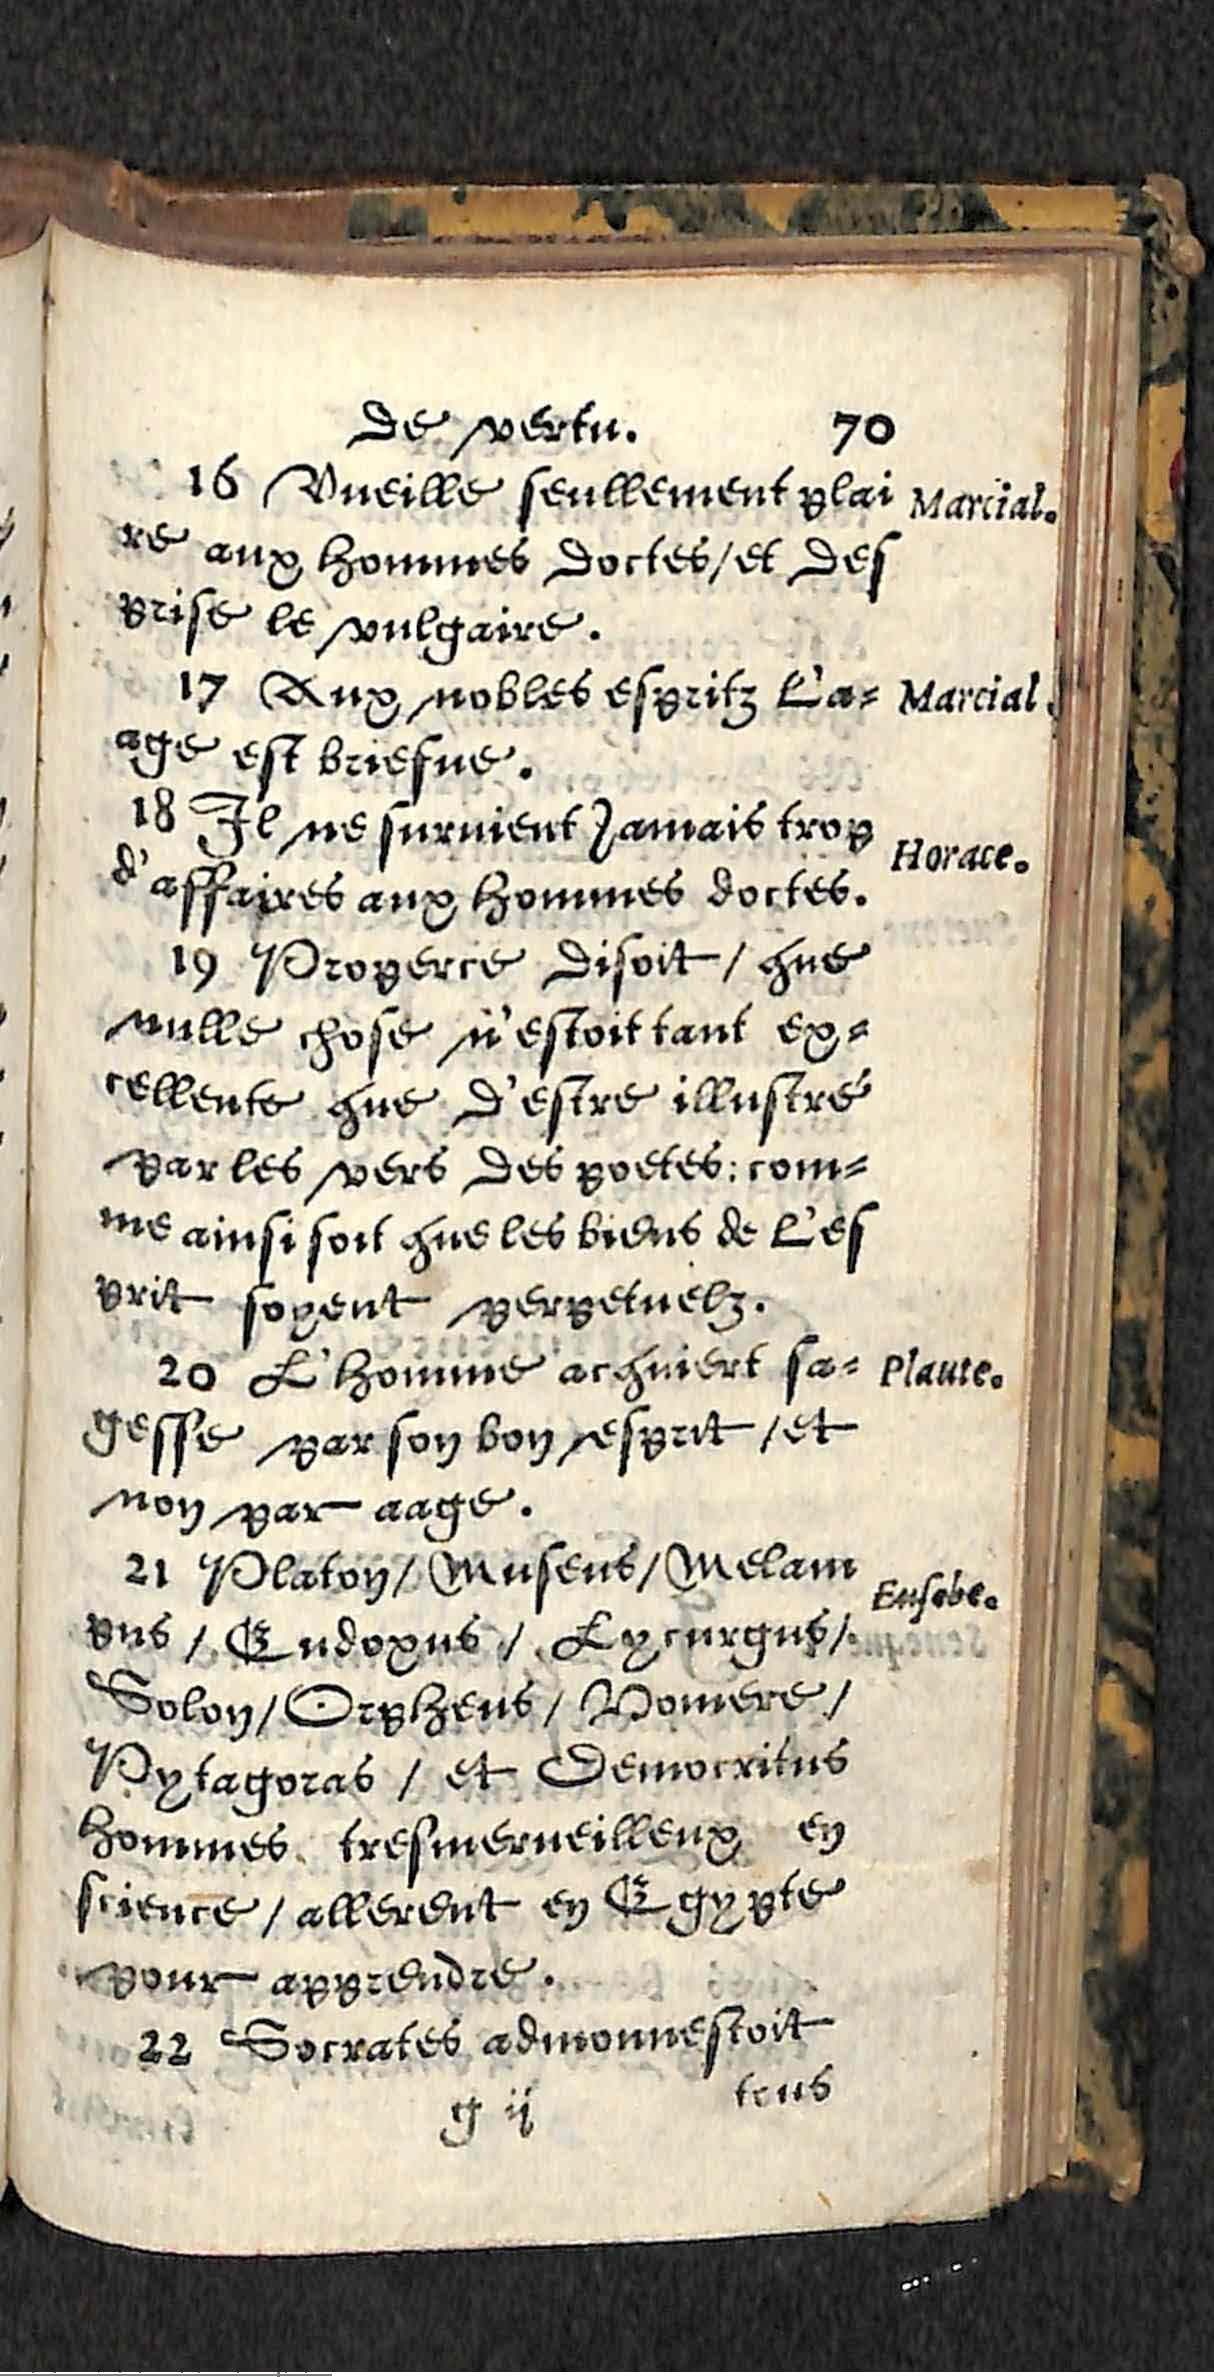 de vertu. 70
16 Vueille seullement plai Marcial.
re aux hommes doctes/et des
prise le vulgaire.
17 Aux nobles espritz l'a= Marcial.
age est briefue.
18 Il ne suruient Jamais trop
d'affaires aux hommes doctes. Horace.
19 Properce disoit / que
nulle chose n'estoit tant ex=
cellente que d'estre illustré
par les vers des poetes: com=
me ainsi soit que les biens de l'es
prit soyent perpetuelz.
20 L'homme acquiert sa= Plaute.
gesse par son bon esprit / et
non par aage.
21 Platon / Museus / Melam Eusebe.
pus / Eudoxus / Lycurgus /
Solon / Orpheus / Homere /
Pytagoras / et Democritus
hommes tresmerueilleux en
science / allerent en Egypte
pour apprendre.
22 Socrates admonnestoit
g ij tous